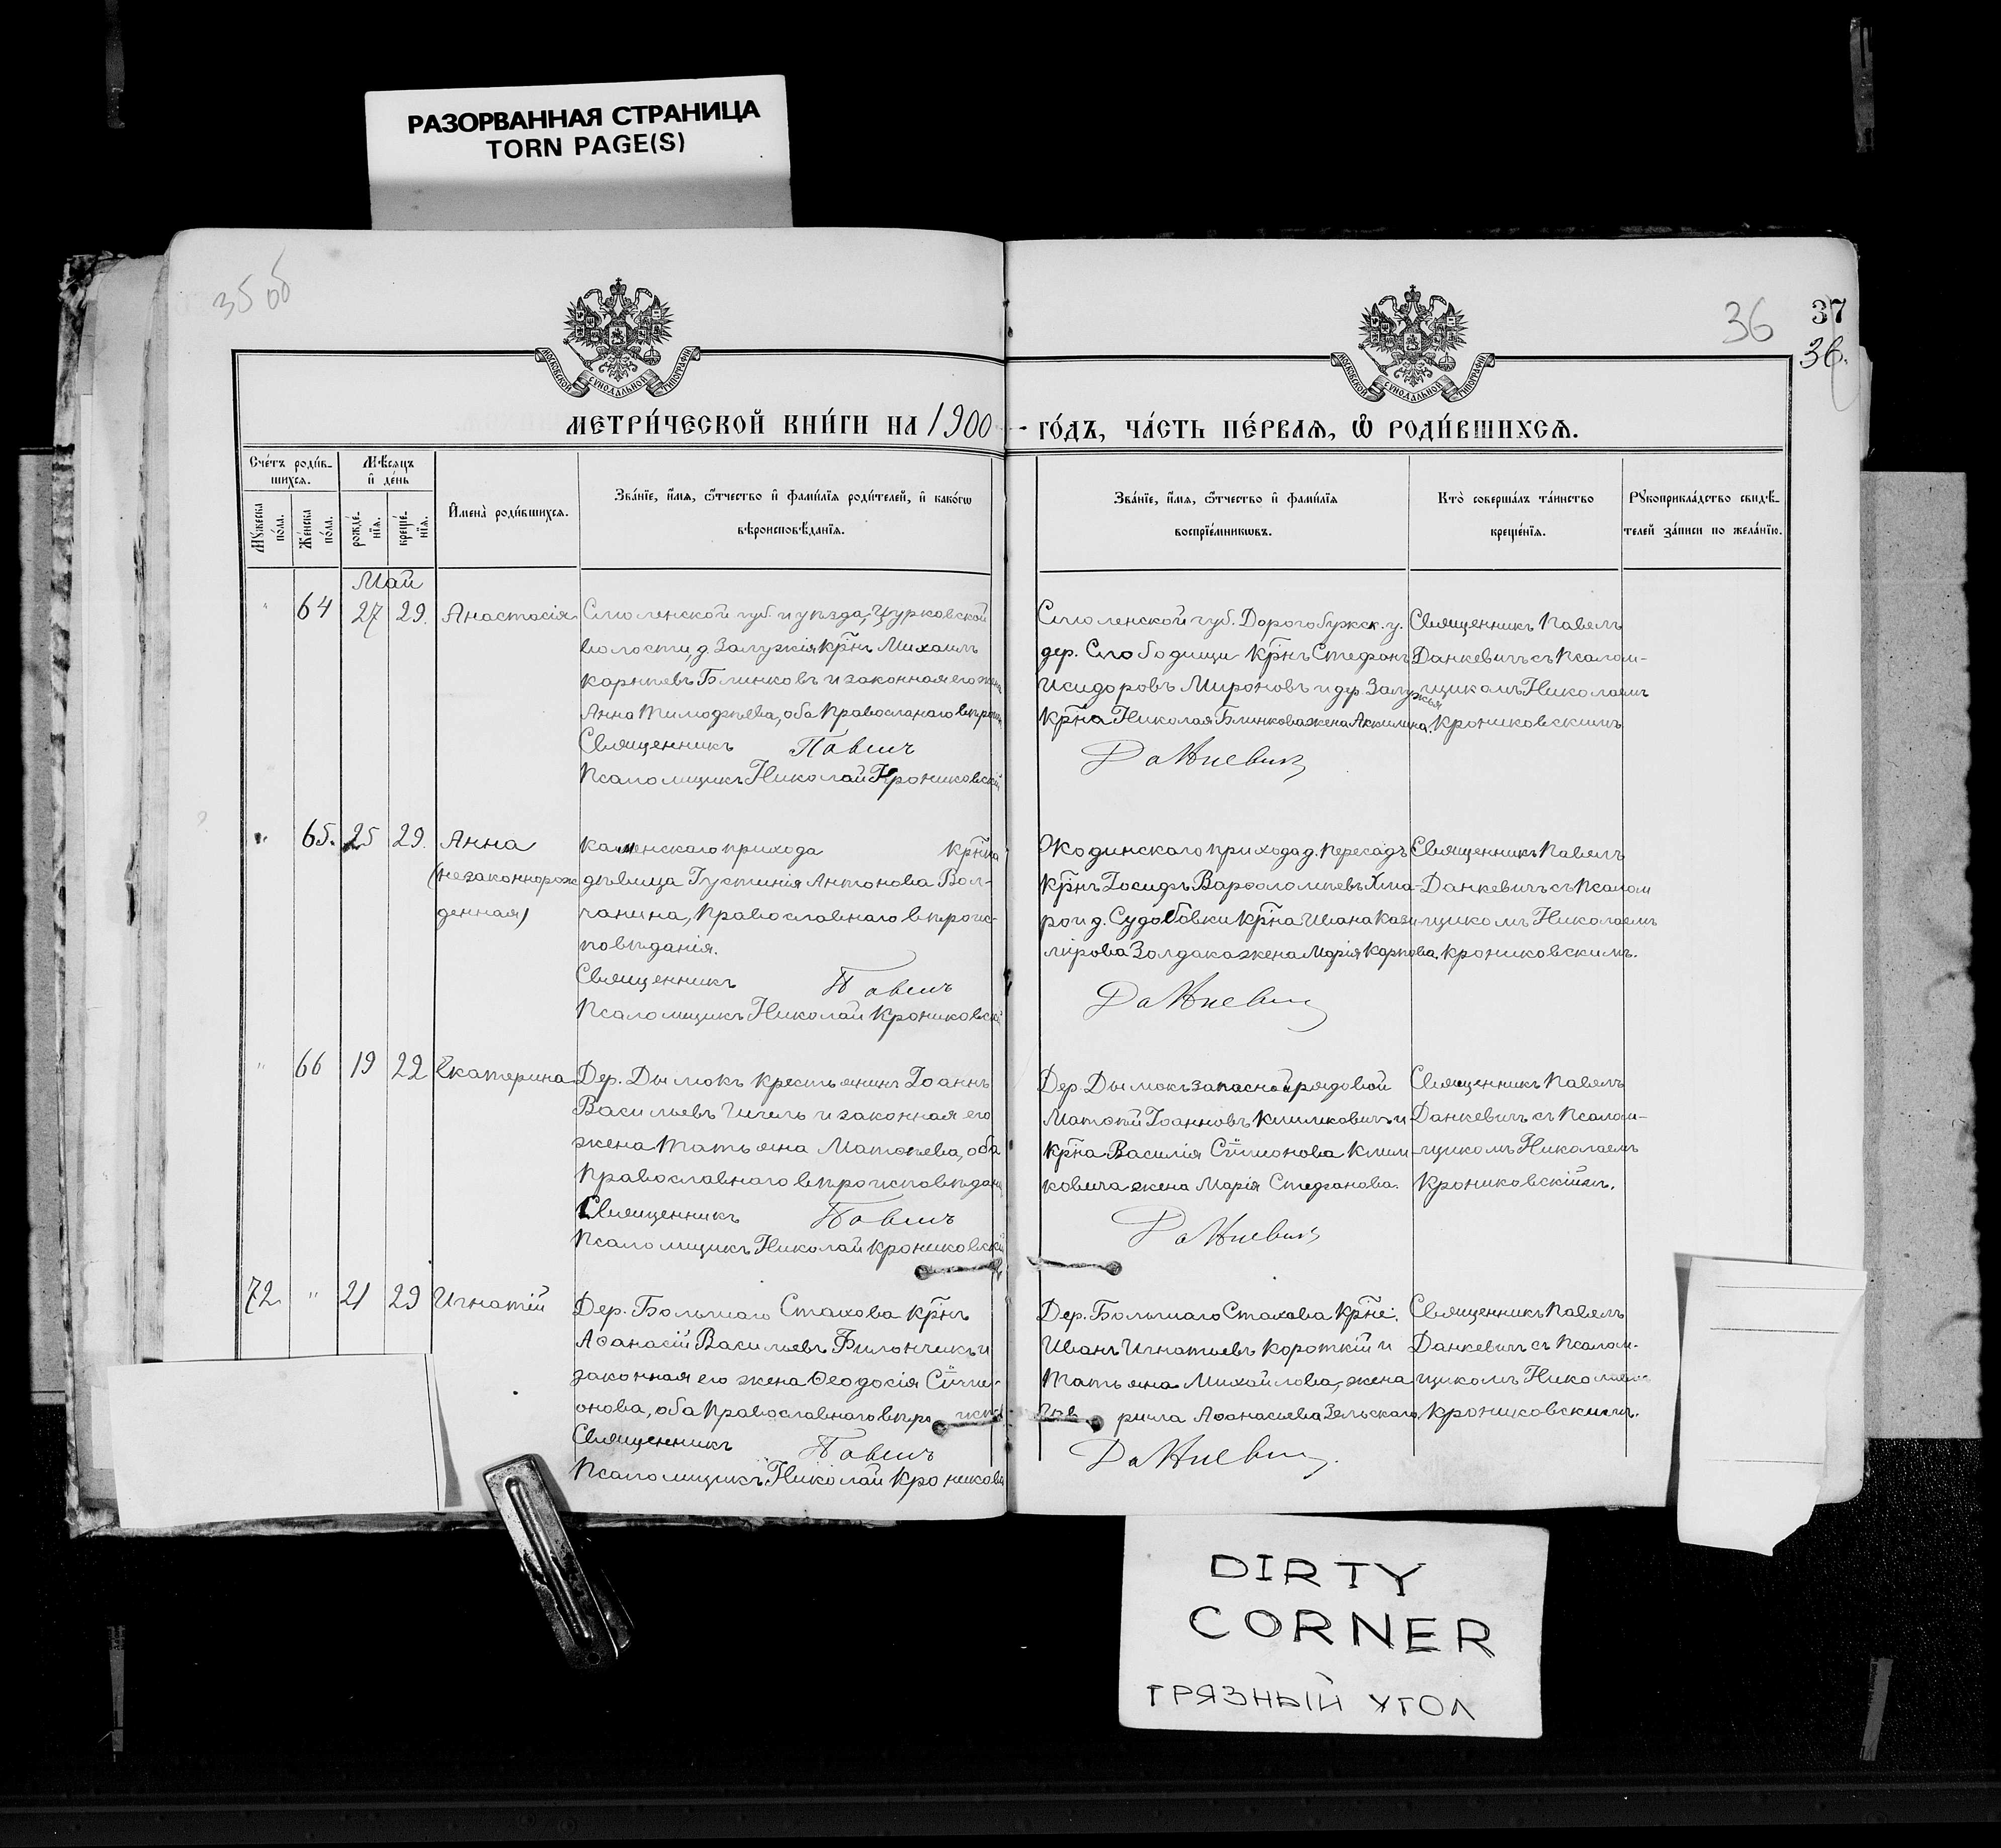 РАЗОРВАННАЯ СТРАНИЦА
TORN PAGE(S)
35 об
36
37
36.
МОСКОВСКОЙ СУНОДАЛЬНОЙ ТИПОГРАФІИ
МОСКОВСКОЙ СУНОДАЛЬНОЙ ТИПОГРАФІИ
МЕТРИ́ЧЕСКОЙ КНИ́ГИ НА 1900 - ГО́ДЪ, ЧА́СТЬ ПЕ́РВАЯ, Ѽ РОДИ́ВШИХСѦ.
Сче́тъ роди́в-
шихся.
Мѣ́сяцъ
и҆ де́нь
Му́жеска по́ла.
Же́нска по́ла.
рожде́-нїя.
креще́-нїя.
И҆мена̀ роди́вшихся.
Зва́нїе, и҆́мя, ѻ҆́тчество и҆ фами́лїя роди́телей, и҆ како́гѡ
вѣроисповѣ́данїя.
Зва́нїе, и҆́мя, ѻ҆́тчество и҆ фами́лїя
воспрїе́мникѡвъ.
Кто̀ соверша́лъ та́инство
креще́нїя.
Рꙋкоприкла́дство свидѣ́-
телей за́писи по жела́нїю.
Май
" 64 27 29. Анастасія
Смоленской губ. и уѣзда, Цурковской
волости, д. Залужія кр̃нъ Михаилъ
Карпѣевъ Блинковъ и законная его жена
Анна Тимофѣева, оба православнаго вѣроисп
Священникъ Павелъ
Псаломщикъ Николай Крониковскій
Смоленской губ. Дорогобужск. у.
дер. Слободищи кр̃нъ Стефанъ
Исидоровъ Мироновъ и дер. Залужья
кр̃на Николая Блинкова жена Акилина.
Данкевичъ
Священникъ Павелъ
Данкевичъ съ псалом-
щикомъ Николаемъ
Крониковскимъ
" 65. 25 29. Анна
(незаконнорож
денная)
Каменскаго прихода кр̃нка
дѣвица Густинія Антонова Вол-
чанина, православнаго вѣроис-
повѣданія.
Священникъ Павелъ
Псаломщикъ Николай Крониковскій
Жодинскаго прихода д. Пересадъ
кр̃нъ Іосифъ Варфоломѣевъ Хма-
ро и д. Судобовки кр̃на Ивана Кази-
мірова Золдака жена Марія Карпова.
Данкевичъ
Священникъ Павелъ
Данкевичъ съ псалом
щикомъ Николаемъ
Крониковскимъ.
" 66 19 22 Екатерина
Дер. Дымокъ крестьянинъ Іоаннъ
Васильевъ Чигиль и законная его
жена Татьяна Матѳеева, оба
православнаго вѣроисповѣдан
Священникъ Павелъ
Псаломщикъ Николай Крониковскій
Дер. Дымокъ запасной рядовой
Матѳій Іоанновъ Климковичъ и
кр̃на Василія Сѵмеонова Клим-
ковича жена Марія Стефанова.
Данкевичъ
Священникъ Павелъ
Данкевичъ съ псалом-
щикомъ Николаемъ
Крониковскіймъ.
72. " 21 29 Игнатій
Дер. Большаго Стахова кр̃нъ
Аѳанасій Васильевъ Билончикъ и
законная его жена Ѳеодосія Сѵме-
онова, оба православнаго вѣро исп
Священникъ Павелъ
Псаломщикъ Николай Крониковс
Дер. Большаго Стахова кр̃не:
Иванъ Игнатьевъ Короткій и
Татьяна Михайлова, жена
Гав рила Аѳанасьева Зельскаго.
Данкевичъ.
Священникъ Павелъ
Данкевичъ съ псалом-
щикомъ Николаем
Крониковскимъ.
DIRTY
CORNER
ГРЯЗНЫЙ УГОЛ